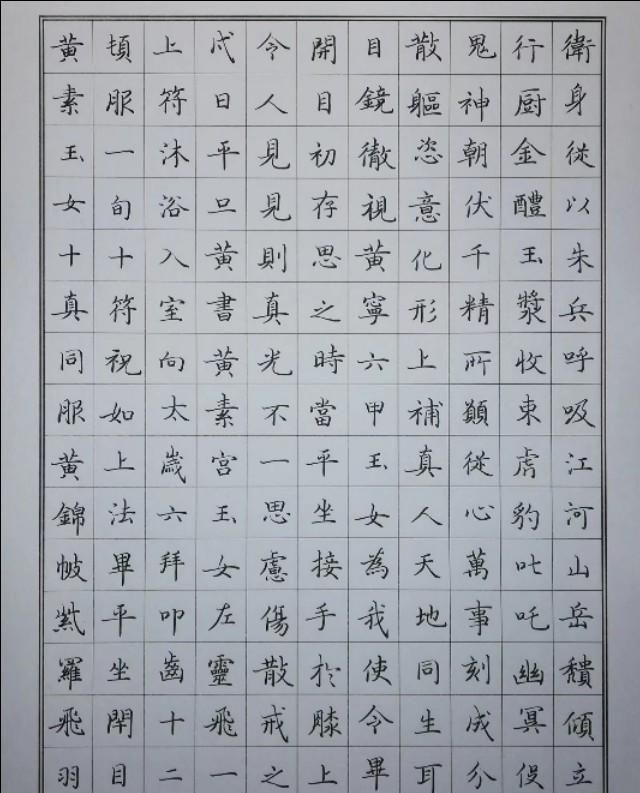 衛身從以朱兵呼吸江河山岳穨傾立
行厨金醴玉漿收束虎豹叱吒幽冥役
鬼神朝伏千精所願從心萬事刻成分
散軀恣意化形上補真人天地同生耳
目鏡徹視黃寧六甲玉女為我使令畢
開目初存思之時當平坐接手於膝上
令人見見則真光不一思慮傷散戒之
戊日平旦黃書黃素宮玉女左靈飛一
上符沐浴入室向太歲六拜叩齒十二
頓服一旬十符祝如上法畢平坐閉目
黃素玉女十真同服黃錦帔紫羅飛羽